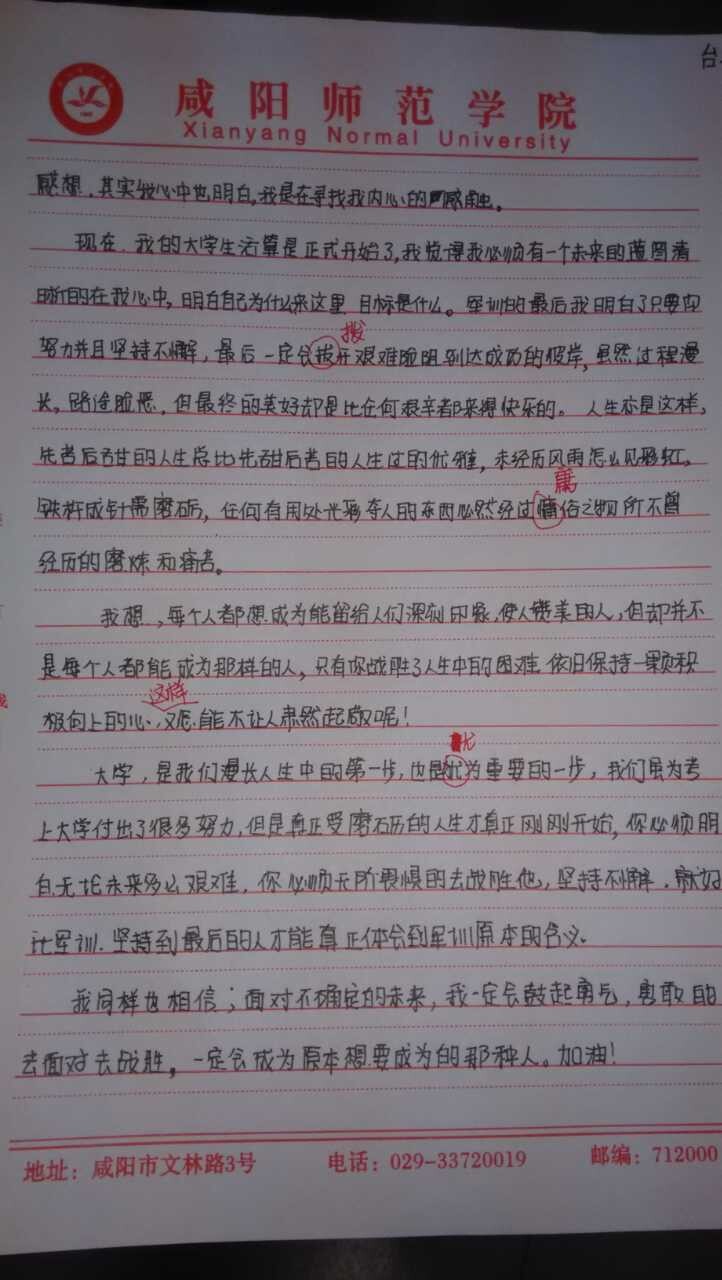 台
咸阳师范学院
Xianyang Normal University
感想，其实我心中也明白，我是在寻找我内心的感触。
现在，我的大学生活算是正式开始了，我觉得我必须有一个未来的蓝图清
晰的在我心中，明白自己为什么来这里，目标是什么。军训的最后我明白了只要向
拨
努力并且坚持不懈，最后一定会拔开艰难险阻到达成功的彼岸，虽然过程漫
长，路途险恶，但最终的美好却是比任何艰辛都来得快乐的。人生亦是这样，
先苦后甜的人生总比先甜后苦的人生过的优雅，未经历风雨怎么见彩虹，
庸
铁杵成针需磨砺，任何有用处光彩夺人的东西必然经过慵俗之物所不曾
经历的磨炼和痛苦。
我想，每个人都想成为能留给人们深刻印象，使人赞美的人，但却并不
是每个人都能成为那样的人，只有你战胜了人生中的困难依旧保持一颗积
这样
极向上的心，又怎能不让人肃然起敬呢！
尤
大学，是我们漫长人生中的第一步，也是优为重要的一步，我们虽为考
上大学付出了很多努力，但是真正受磨砺的人生才真正刚刚开始，你必须明
白无论未来多么艰难，你必须无所畏惧的去战胜他，坚持不懈，就好
比军训，坚持到最后的人才能真正体会到军训原本的含义。
我同样也相信；面对不确定的未来，我一定会鼓起勇气，勇敢的
去面对去战胜，一定会成为原本想要成为的那种人。加油！
地址：咸阳市文林路3号 电话：029-33720019 邮编：712000